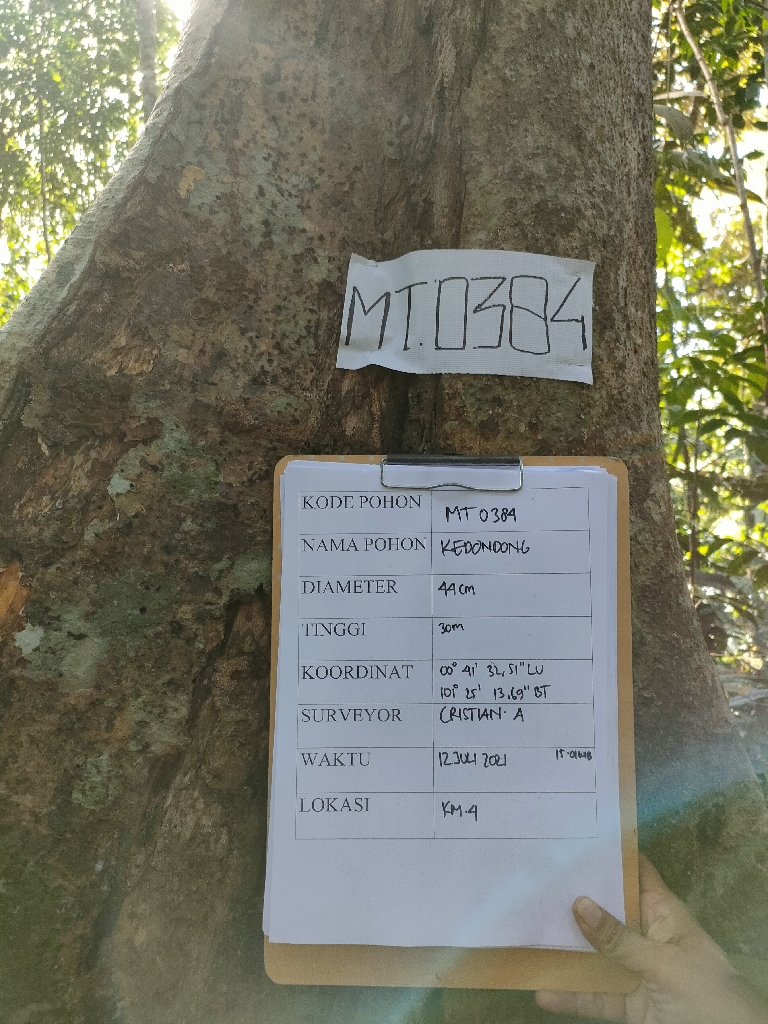 MT.0384
KODE POHON MT 0384
NAMA POHON KEDONDONG
DIAMETER 44 cm
TINGGI 30m
KOORDINAT 00° 41' 32,51" LU
101° 25' 13,69" BT
SURVEYOR CRISTIAN. A
WAKTU 12 JULI 2021 15.01 WIB
LOKASI KM.4